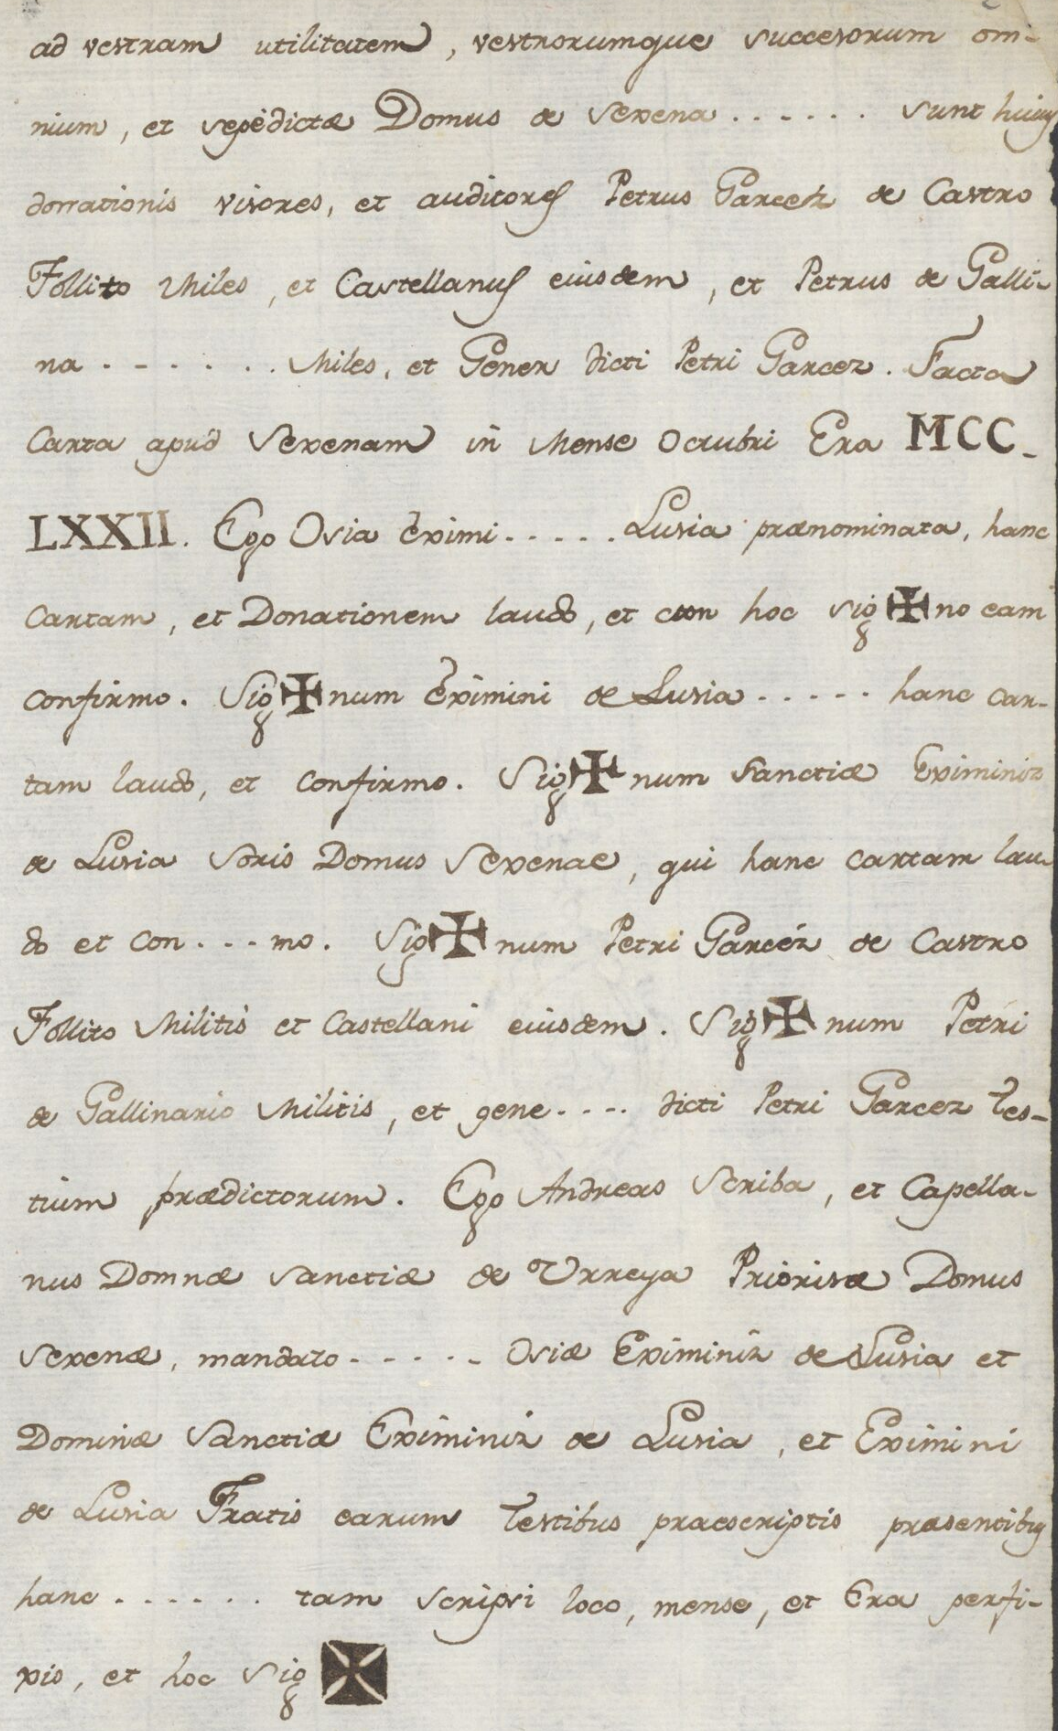 ad vestram utilitatem, vestrorumque succesorum om-
nium, et sepèdictæ Domus de Sexena ...... sunt huius
donationis visores, et auditores Petrus Garcez de Castro
Follito Miles, et Castellanus eiusdem, et Petrus de Galli-
na ...... Miles, et Gener dicti Petri Garcez. Facta
Carta apud Sexenam in Mense Octubri Era MCC-
LXXII. Ego Osia Eximi ..... Lusia prænominata, hanc
Cartam, et Donationem laudo, et cum hoc sig✠no eam
confirmo. Sig✠num Eximini de Lusia ..... hanc car-
tam laudo, et confirmo. Sig✠num Sanctiæ Eximiniz
de Lusia Soris Domus Sexenae, qui hanc cartam lau-
do et con...mo. Sig✠num Petri Garcéz de Castro
Follito Militis et Castellani eiusdem. Sig✠num Petri
de Gallinario Militis, et gene.... dicti Petri Garcez tes-
tium prædictorum. Ego Andreas Scriba, et Capella-
nus Domnæ Sanctiæ de Urreya Priorisæ Domus
Sexenæ, mandato ..... Osiæ Eximiniz de Lusia et
Dominæ Sanctiæ Eximiniz de Lusia, et Eximini
de Lusia Fratis earum testibus praescriptis præsentibus
hanc ...... tam scripsi loco, mense, et Era perfi-
xis, et hoc Sig ✠